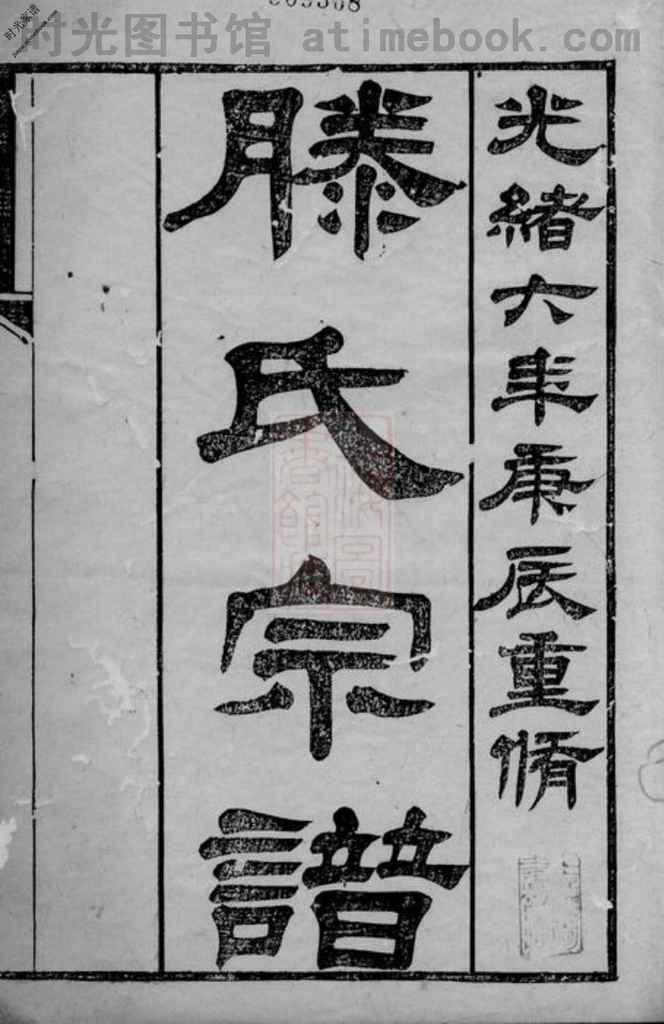 时光图书馆 atimebook.com
时光家谱
光緒六年庚辰重脩
滕氏宗譜